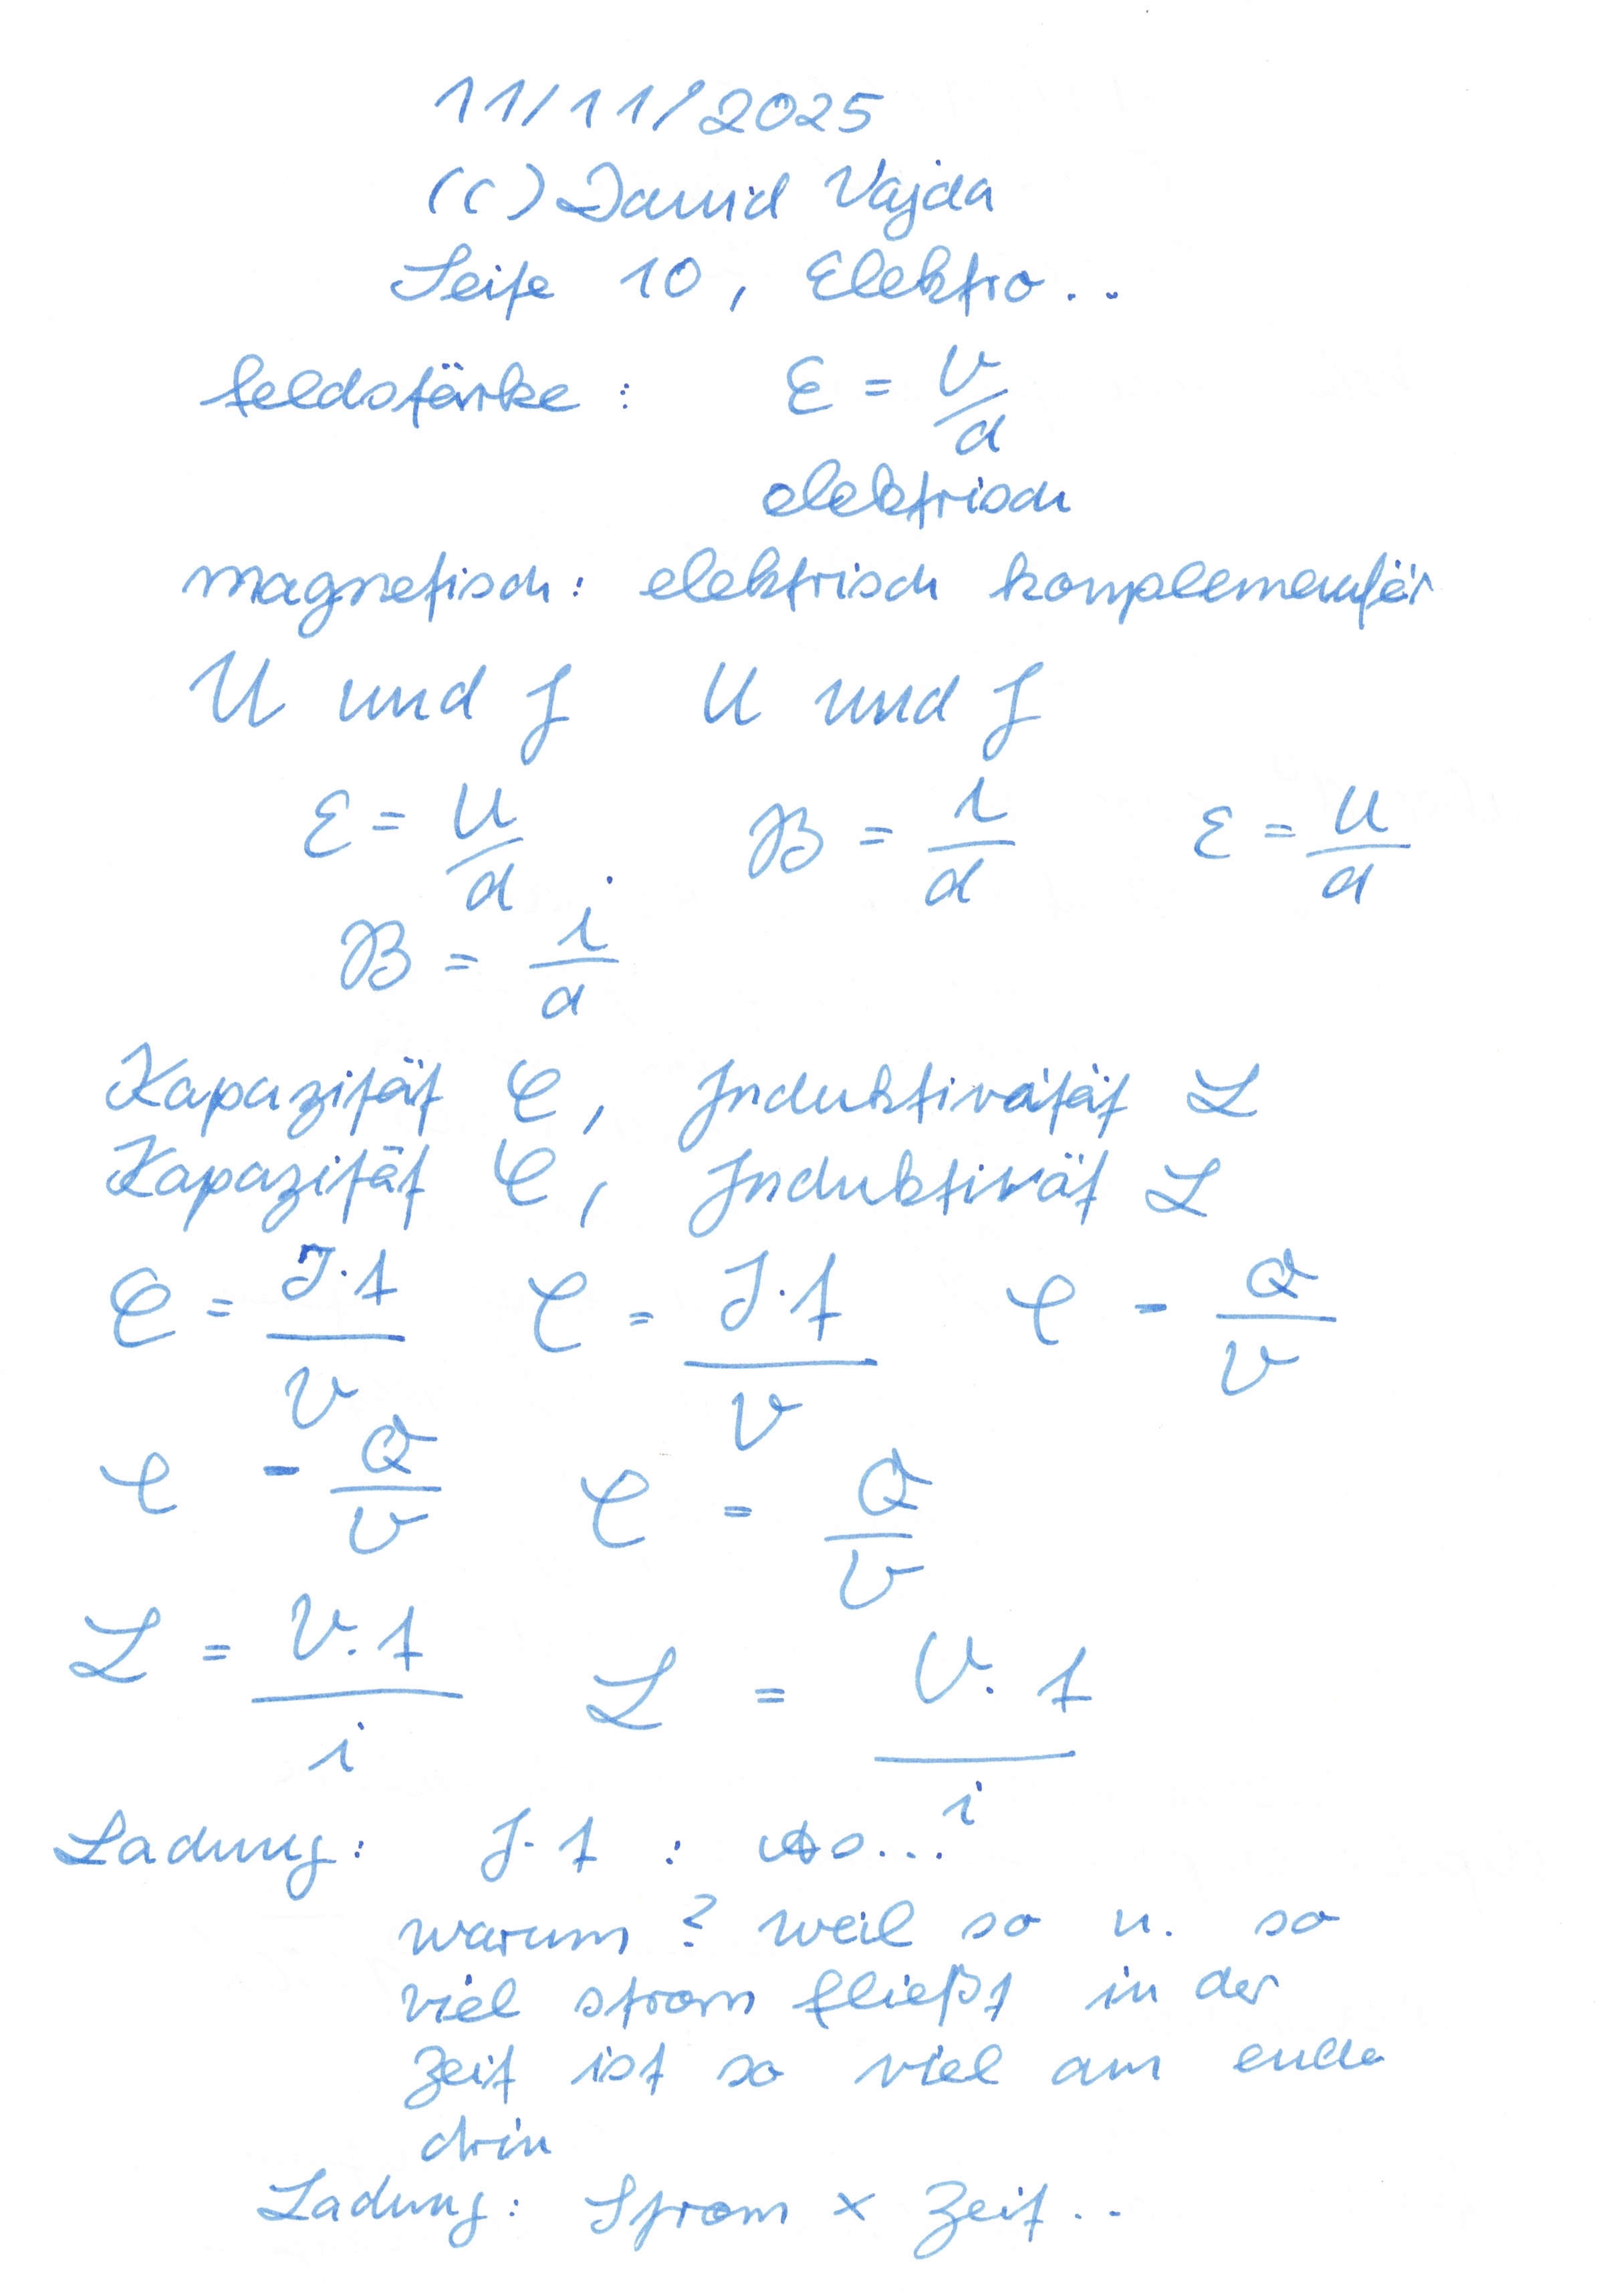 11/11/2025
(C) David Vajda
Seite 10, Elektro..
feldstärke: E = U/d
elektrisch
magnetisch: elektrisch komplementär
U und I U und I
E = U/d B = i/d E = U/d
B = i/d
Kapazität C, Induktivätät L
Kapazität C, Induktivät L
C = I·t/U C = I·t/U C = Q/U
C = Q/U C = Q/U
L = U·t/i L = U·t/i
Ladung: I·t : As...
warum? weil so u. so
viel strom fließt in der
Zeit ist so viel am ende
drin
Ladung: Strom × Zeit..